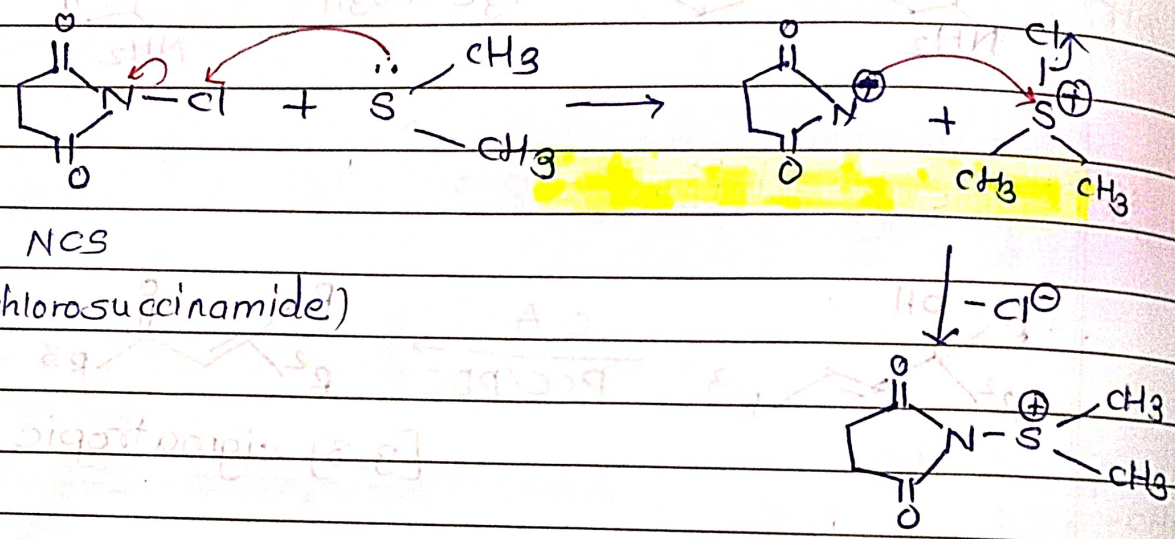 O O Cl
N-Cl + S CH3 CH3 → N⊕ + S⊕
O O CH3 CH3
NCS
hlorosuccinamide) -Cl⊖
O
N-S⊕ CH3 CH3
O